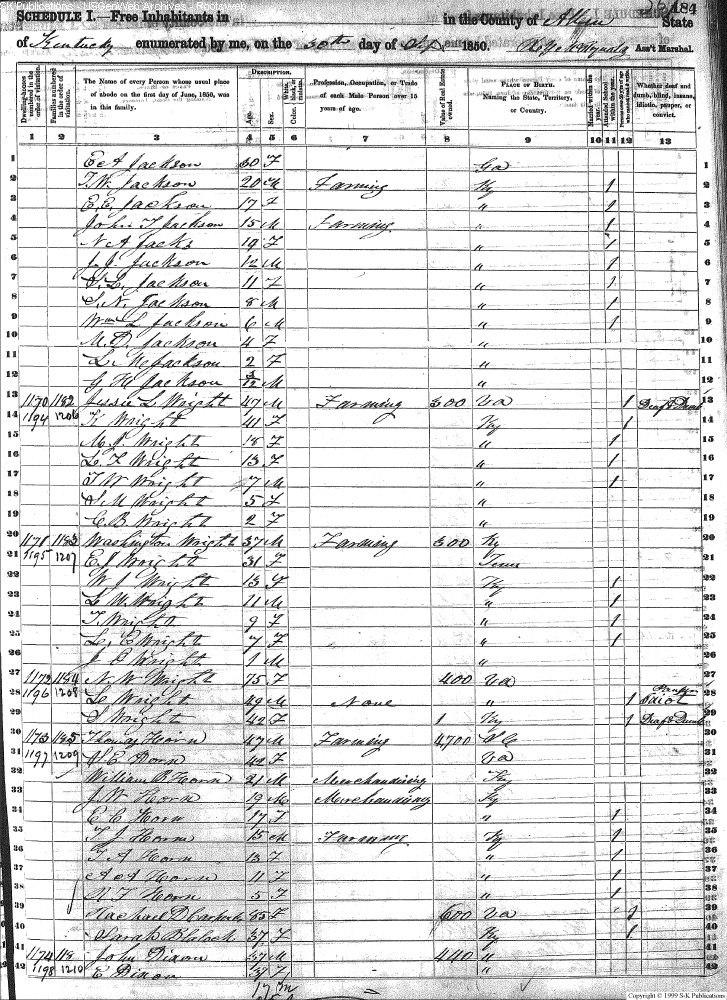 Publications - USGenWeb Archives - Rootsweb
SCHEDULE I.—Free Inhabitants in in the County of Allen State 484
of Kentucky enumerated by me, on the 30th day of 1850. Ass't Marshal.
Dwelling-houses numbered in the order of visitation.
Families numbered in the order of visitation.
The Name of every Person whose usual place of abode on the first day of June, 1850, was in this family.
DESCRIPTION.
Age.
Sex.
Color
Profession, Occupation, or Trade of each Male Person over 15 years of age.
Value of Real Estate owned.
PLACE OF BIRTH. Naming the State, Territory, or Country.
Married within the year.
Attended School within the year.
Whether deaf and dumb, blind, insane, idiotic, pauper, or convict.
1 2 3 4 5 6 7 8 9 10 11 12 13
1 Jackson F Ga 1
2 T. W. Jackson 20 M Farming Ky 1 2
3 E. E. Jackson 17 F " 1 3
4 John T Jackson 15 M Farming " 1 4
5 N A Jacks 19 F " 1 5
6 J. J. Jackson 12 M " 1 6
7 Jackson 11 F " 1 7
8 S. N. Jackson 8 M " 1 8
9 Wm L Jackson 6 M " 1 9
10 M. D. Jackson 4 F " 10
11 Jackson 2 F " 11
12 G H Jackson 3/12 M " 12
13 1170 1182 Jessie L Wright 47 M Farming 300 Va 1 Deaf & Dumb 13
14 1194 1206 K Wright 41 F Ky 1 14
15 M. J. Wright 18 F " 1 15
16 L. F Wright 13 F " 1 16
17 T W Wright 7 M " 1 17
18 S M Wright 5 F " 18
19 C. B. Wright 2 F " 19
20 1171 1183 Washington Wright 37 M Farming 300 Ky 20
21 1195 1207 E. J Wright 31 F Tenn 21
22 W J Wright 13 Ky 1 22
23 L. W. Wright 11 M " 1 23
24 T. Wright 9 F " 1 24
25 L. E Wright 7 F " 1 25
26 Wright 1 M " 26
27 1172 1184 N W Wright 75 F 400 Va 27
28 1196 1208 Le Wright 49 M None " 1 Pauper Idiot 28
29 S Wright 42 F 1 Ky 1 Deaf & Dumb 29
30 1173 1185 Henry Horn 47 M Farming 4,700 30
31 1197 1209 42 F Va 31
32 William B Horn 21 M Merchandising Ky 32
33 J. W Horn 19 M Merchandising Ky 33
34 E C Horn 17 F " 1 34
35 T J Horn 15 M Farming Ky 1 35
36 T A Horn 13 F " 1 36
37 A A Horn 11 F " 1 37
38 Horn 5 F " 1 38
39 Rachael D F 600 Va 1 39
40 Sarah Blalock 37 F Ky 1 40
41 1174 118 John Dixon 37 M 440 " 41
42 1198 1210 E Dixon F " 42
17 m
Copyright © 1999 S-K Publications